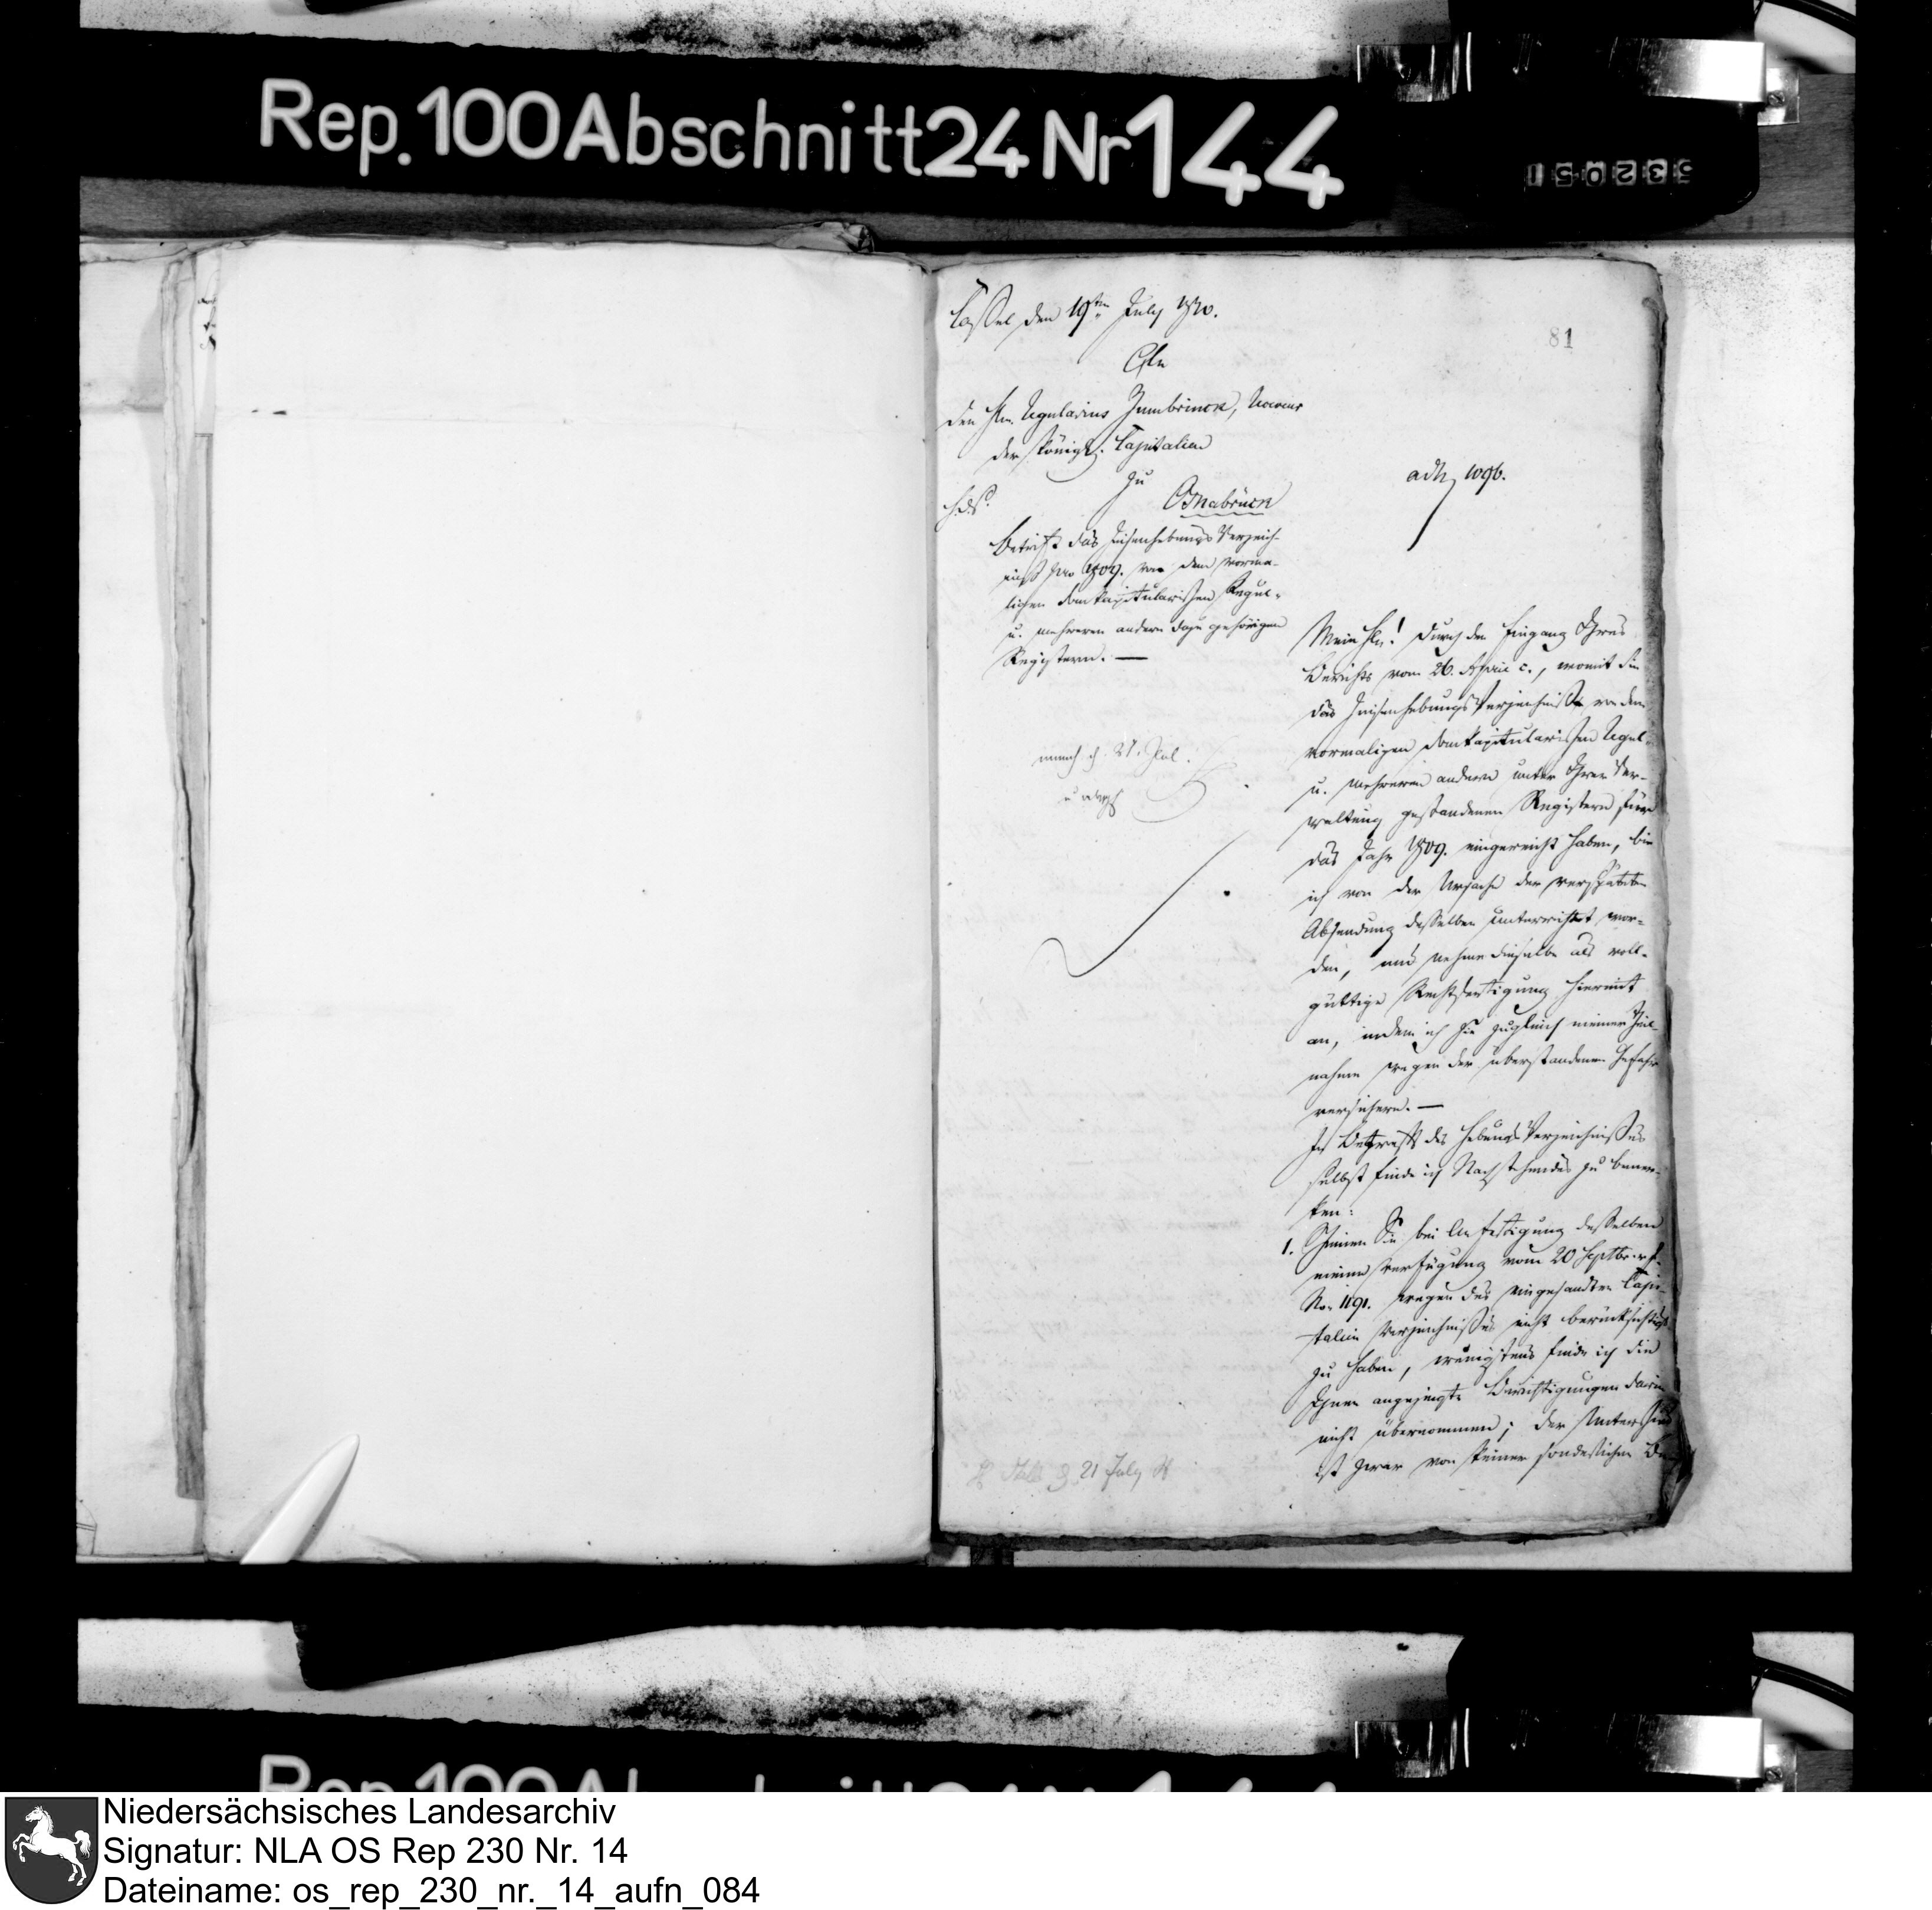 Rep. 100 Abschnitt 24 Nr 144
532051
Cassel, den 19ten July 1810.
81
An
den Hrn. Regularius Zumbrinck, Receveur
der Königl. Capitalien
zu
Osnabrück
adh. 1096.
Betrifft das Zinsenhebungs Verzeich-
niß pro 1809. von dem vorma-
ligen domkapitularischen Regul-
u. mehreren andern dazu gehörigen
Registern. —
Mein Hr.! Durch den Eingang Ihres
Berichts vom 26. April c., womit Sie
das Zinsenhebungs Verzeichniß von dem
vormaligen domkapitularischen Regul-
u. mehreren andern unter Ihrer Ver-
waltung gestandenen Registern für
das Jahr 1809. eingereicht haben, bin
ich von der Ursache der verspäteten
Absendung desselben unterrichtet wor-
den, und nehme dieselbe als voll-
gültige Rechtfertigung hiermit
an, indem ich Sie zugleich meiner Theil-
nahme wegen der überstandenen Gefahr
versichere. —
In Betreff des Hebungs Verzeichnißes
selbst finde ich Nachstehendes zu bemer-
ken:
1. Scheinen Sie bei Anfertigung desselben
meine Verfügung vom 20 Septbr. v. J.
No. 1191. wegen des eingesandten Capi-
talien Verzeichnißes nicht berücksichtigt
zu haben, wenigstens finde ich die
Ihnen angezeigte Berichtigungen darin
nicht übernommen; der Unterschied
ist zwar von keiner sonderlichen Be-
21 July
Niedersächsisches Landesarchiv
Signatur: NLA OS Rep 230 Nr. 14
Dateiname: os_rep_230_nr._14_aufn_084